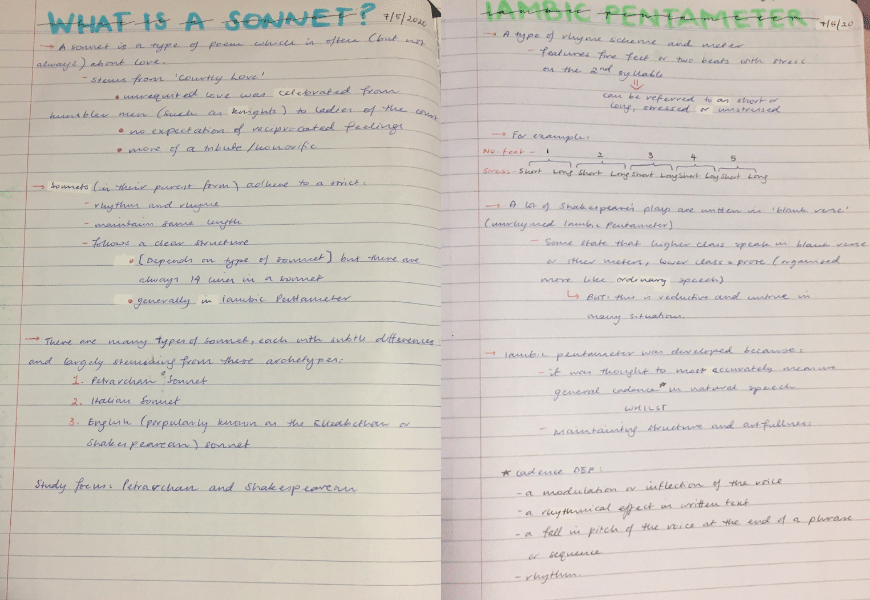 WHAT IS A SONNET? 7/5/2020
→ A sonnet is a type of poem which is often (but not
always) about love.
- Stems from 'Courtly Love'
• unrequited love was celebrated from
humbler men (such as knights) to ladies of the court
• no expectation of reciprocated feelings
• more of a tribute/honorific
→ Sonnets (in their purest form) adhere to a strict:
- rhythm and rhyme
- maintain same length
- follows a clear structure
• [Depends on type of sonnet] but there are
always 14 lines in a sonnet
• generally in Iambic Pentameter
→ There are many types of sonnet, each with subtle differences
and largely stemming from these archetypes:
1. Petrarchan Sonnet
2. Italian Sonnet
3. English (popularly known as the Elizabethan or
Shakespearean) sonnet
Study focus: Petrarchan and Shakespearean
IAMBIC PENTAMETER 7/5/20
→ A type of rhyme scheme and meter
- features five feet or two beats with stress
on the 2nd syllable
⇓
can be referred to as short or
long, stressed or unstressed
→ For example:
No. feet - 1 2 3 4 5
Stress: Short Long Short Long Short Long Short Long Short Long
→ A lot of Shakespeare's plays are written in 'blank verse'
(unrhymed Iambic Pentameter)
- Some state that higher class speak in blank verse
or other meters, lower class = prose (organised
more like ordinary speech)
↳ BUT: this is reductive and untrue in
many situation.
→ Iambic pentameter was developed because:
- it was thought to most accurately measure
general cadence* in natural speech
WHILST
- Maintaining structure and artfullness
* cadence DEF:
- a modulation or inflection of the voice
- a rhythmical effect in written text
- a fall in pitch of the voice at the end of a phrase
or sequence
- rhythm.